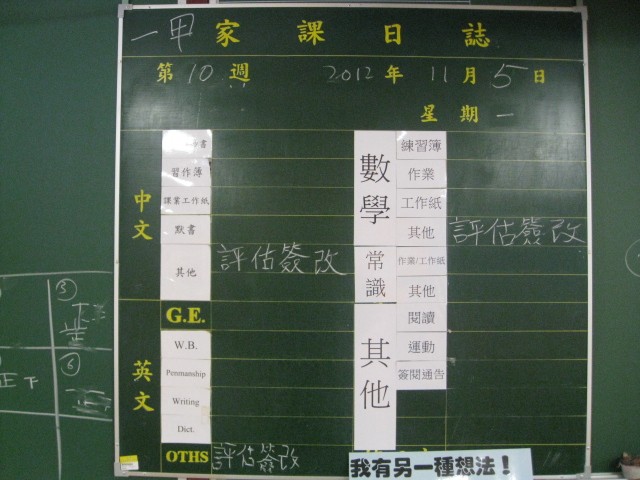 一甲 家課日誌
第10週 2012年 11月5日
星期一
中文
書
習作簿
課業工作紙
默書
其他 評估簽改
G.E.
英文
W.B.
Penmanship
Writing
Dict.
OTHS 評估簽改
數學
練習簿
作業
工作紙
其他 評估簽改
常識
作業/工作紙
其他
其他
閱讀
運動
簽閱通告
我有另一種想法！
③
正
⑥
正下